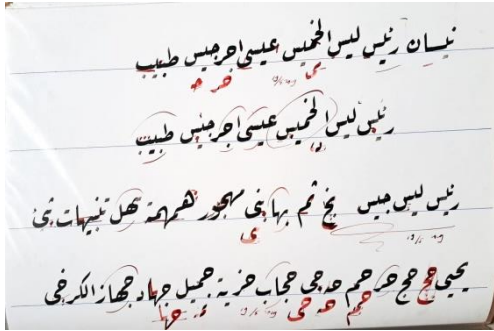 نيسان رئيس ليس الخميس عيسى اجر جيس طبيب
رئيس ليس الخميس عيسى اجر جيس طبيب
رئيس ليس جيس بخ ثم بها بنى مهجور همهمة تهل تنبيهات
يحيى حج حج هر حم حجاب خزية جميل جهاد جهاز الكرخي